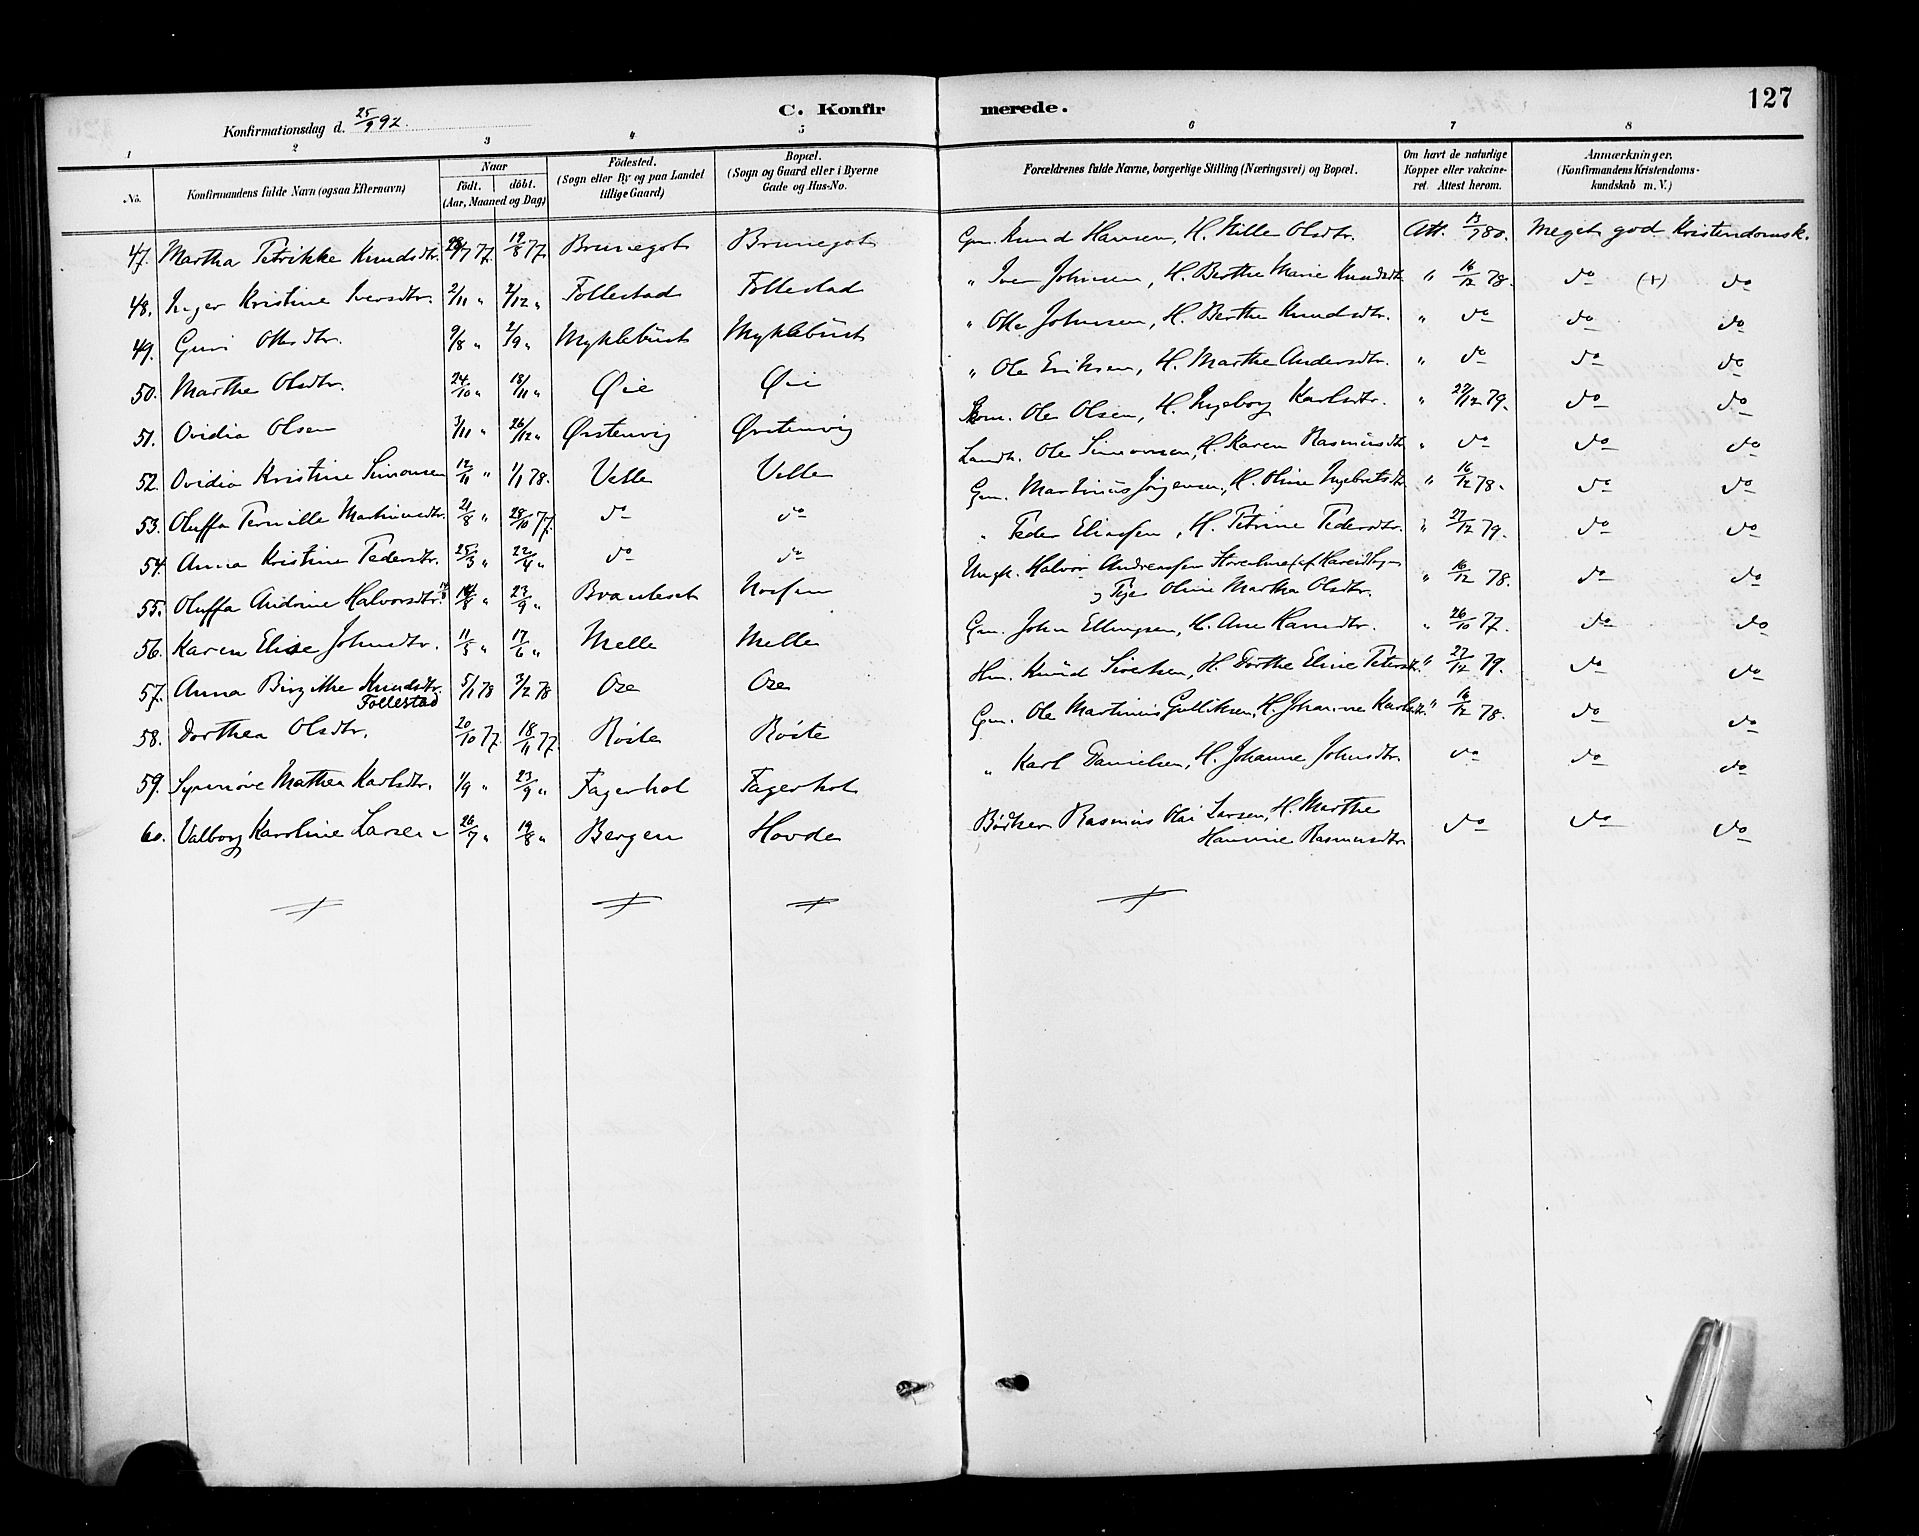 127
Konfirmationsdag d. 25/9 92.
C. Konfirmerede.
1 2 3 4 5 6 7 8
No. Konfirmandens fulde Navn (ogsaa Efternavn) Naar födt. döbt. (Aar, Maaned og Dag) Födested. (Sogn eller By og paa Landet tillige Gaard) Bopæl. (Sogn og Gaard eller i Byerne Gade og Hus-No. Forældrenes fulde Navne, borgerlige Stilling (Næringsvei) og Bopæl. Om havt de naturlige Kopper eller vaktineret. Attest herom. Anmærkninger. (Konfirmandens Kristendomskundskab m. V.)
47. Martha Petrikke Knudsdtr. 28/7 77. 19/8 77. Brunegot Brunegot Gm. Knud Hansen, H. Olsdtr. Att. 80. Meget god Kristendomsk.
48. Inger Kristine Iversdtr. 2/11 " 2/12 " Follestad Follestad " Iver Johnsen, H. Berthe Marie Knudsdtr. " 16/12 78. do (+) do
49. Guri Ottesdtr. 9/8 " 2/9 " Myklebust Myklebust " Otte Johnsen, H. Berthe Knudsdtr. " do do do
50. Marthe Olsdtr. 24/10 " 18/11 " Øie Øie " Ole Eriksen, H. Marthe Andersdtr. " do do do
51. Ovidia Olsen 3/11 " 26/12 " Ørstenvig Ørstenvig Ole Olsen, H. Ingeborg Karlsdtr. " 27/12 79. do do
52. Ovidia Kristine Simonsen 12/11 " 1/1 78. Velle Velle Landh. Ole Simonsen, H. Karen Rasmusdtr. " do do do
53. Oluffa Pernille Martinusdtr. 21/8 " 28/10 77. do do Gm. Martinus Jørgensen, H. Oline Ingebretsdtr. " 16/12 78. do do
54. Anna Kristine Pedersdtr. 25/3 " 22/4 " do do " Peder Eliassen, H. Petrine Pedersdtr. " 27/12 79. do do
55. Oluffa Andrine Halvorsdtr. 14/8 " 23/9 " Brauteset Ungk. Halvor Andreassen af Hareid
Pige Oline Martha Olsdtr. " 16/12 78. do do
56. Karen Elise Johnsdtr. 11/5 " 17/6 " Melle Melle Gm. John Ellingsen, H. Ane Hansdtr. " 26/10 77. do do
57. Anna Birgithe Knudsdtr. 5/1 78 3/2 78 Ose Ose Hm. Knud Sivertsen, H. Dorthe Eline Petersdtr. " 27/12 79. do do
Follestad
58. Dorthea Olsdtr. 20/10 77. 18/11 77. Röste Röste Gm. Ole Martinus Gulliksen, H. Johanne Karlsdtr. " 16/12 78. do do
59. Synnöve Mathea Karlsdtr. 1/9 " 23/9 " Fagerhol Fagerhol " Karl Danielsen, H. Johanne Johnsdtr. do do do
60. Valborg Karoline Larsen 26/7 " 19/8 " Bergen Hovde Bödker Rasmus Olai Larsen, H. Marthe
Hansine Rasmusdtr. do do do